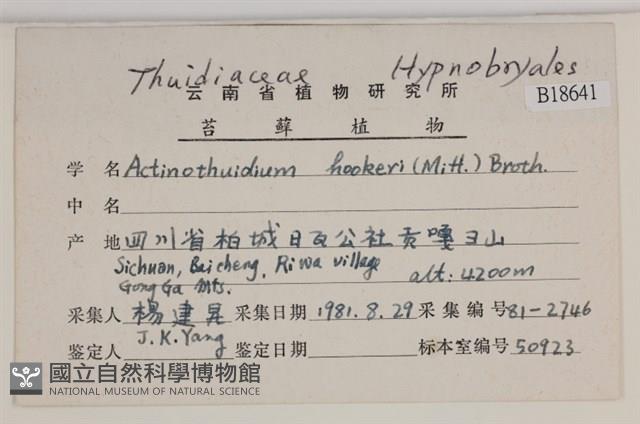 Thuidiaceae Hypnobryales
云南省植物研究所
B18641
苔藓植物
学名 Actinothuidium hookeri (Mitt.) Broth.
中名
产地 四川省柏城日瓦公社贡嘎日山
Sichuan, Baicheng, Riwa village
Gong Ga Mts. alt: 4200m
采集人 楊建昆 采集日期 1981.8.29 采集编号 81-2746
J.K.Yang
鉴定人 鉴定日期 标本室编号 50923
國立自然科學博物館
NATIONAL MUSEUM OF NATURAL SCIENCE